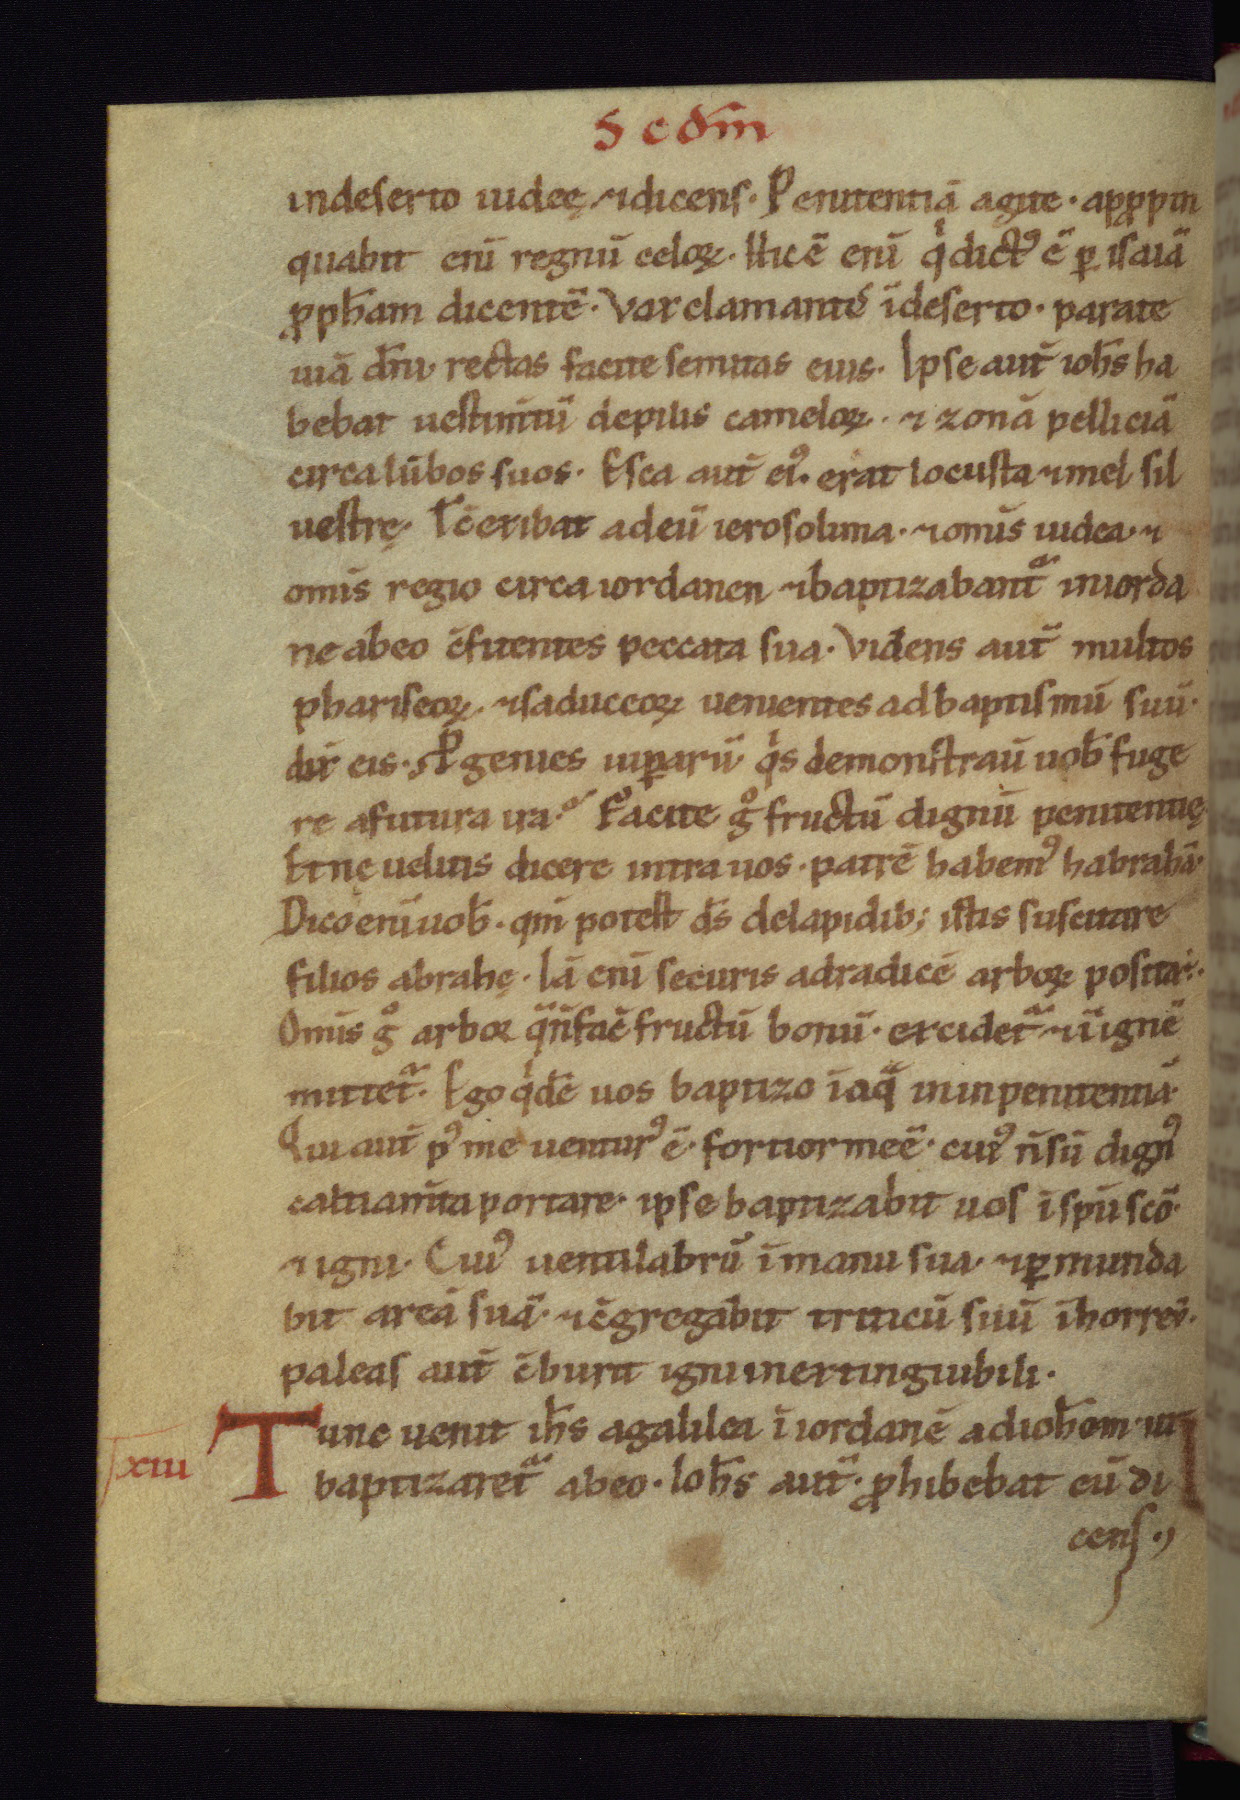 Scdm̄
in deserto iudeę ⁊ dicens. Penitentiā agite. apꝓpin
quabit enī regnū celoꝝ. Hic ē enī qͥ dictꝰ ē ꝑ isaiā
ꝓpħam dicentē. Vox clamantē ī deserto. parate
uiā dn̄i rectas facite semitas eius. Ipse aut̄ ioħs ha
bebat uestim̄tū de pilis cameloꝝ. ⁊ zonā pelliciā
circa lūbos suos. Esca aut̄ eiꝰ. erat locusta ⁊ mel sil
uestrę. Tc̄ exibat ad eū ierosolima. ⁊ omīs iudea. ⁊
omīs regio circa iordanen ⁊ baptizabantᷓ in iorda
ne ab eo c̄fitentes peccata sua. Videns aut̄ multos
phariseoꝝ. ⁊ saduceoꝝ uenientes ad baptismū suū.
dix̄ eis. Pgenies uiꝑarū qͥs demonstrau̅ uob̄ fuge
re a futura ira. Facite gͦ fructū dignū penitentię.
Et ne uelitis dicere intra uos. patrē habemꝰ habrahā.
Dico enī uob̄. qm̄ potest ds̄ de lapidib; istis suscitare
filios abrahę. Iā enī securis ad radicē arboꝝ posita ē.
Omīs gͦ arbor q̄ n̄ fac̄ fructū bonū. excidetᷓ ⁊ ī ignē
mittetᷓ. Ego qͥdē uos baptizo ī aqͣ in inpenitentiā.
Qui aut̄ pꝰ me uenturꝰ ē. fortior me ē. cuiꝰ n̄ sū dignꝰ
caltiam̄ta portare. ipse baptizabit uos ī spū scō.
⁊ igni. Cuiꝰ uentilabrū ī manu sua. ⁊ ꝑmunda
bit areā suā. ⁊ c̄gregabit triticū suū ī horreū.
paleas aut̄ c̄buret igni inextinguibili.
xiii Tunc uenit iħs a galilea ī iordanē ad ioħem. ut
baptizaretᷓ ab eo. Ioħs aut̄. ꝓhibebat eū di
cens.